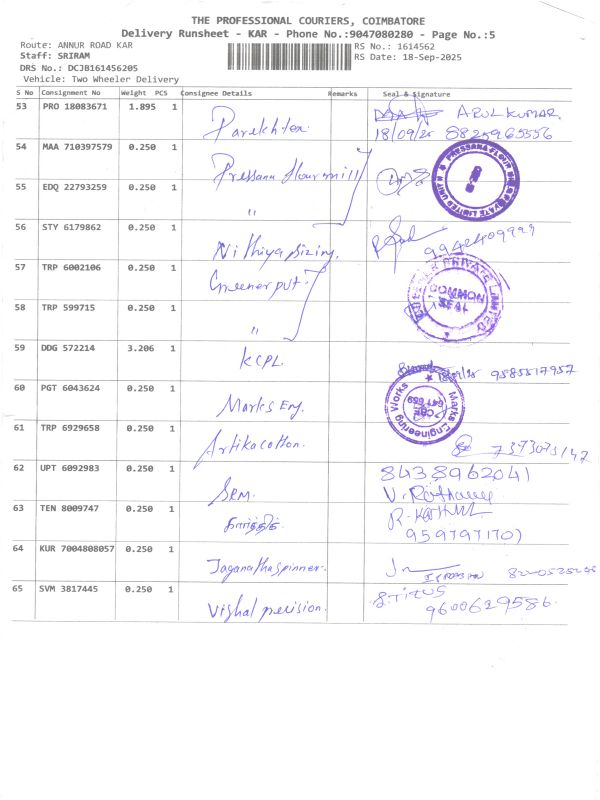 THE PROFESSIONAL COURIERS, COIMBATORE
Delivery Runsheet - KAR - Phone No.:9047080280 - Page No.:5
Route: ANNUR ROAD KAR
RS No.: 1614562
Staff: SRIRAM
RS Date: 18-Sep-2025
DRS No.: DCJB161456205
Vehicle: Two Wheeler Delivery
S No Consignment No Weight PCS Consignee Details Remarks Seal & Signature
53 PRO 18083671 1.895 1 ARUL KUMAR
18/09/25 8825965556
54 MAA 710397579 0.250 1 Pressana flour mill
55 EDQ 22793259 0.250 1 "
56 STY 6179862 0.250 1 Nithiya Sizing.
57 TRP 6002106 0.250 1
COMMON
SEAL
58 TRP 599715 0.250 1 "
59 DDG 572214 3.206 1 KCPL
9585517957
60 PGT 6043624 0.250 1 Marks Eng.
Marks Engineering Works
CBE
641 659
61 TRP 6929658 0.250 1 Artika cotton.
62 UPT 6092983 0.250 1 SRM.
8438962041
63 TEN 8009747 0.250 1
9597971701
64 KUR 7004808057 0.250 1 Jaganatha spinner.
65 SVM 3817445 0.250 1 Vishal precision.
S. TITUS
9600629586